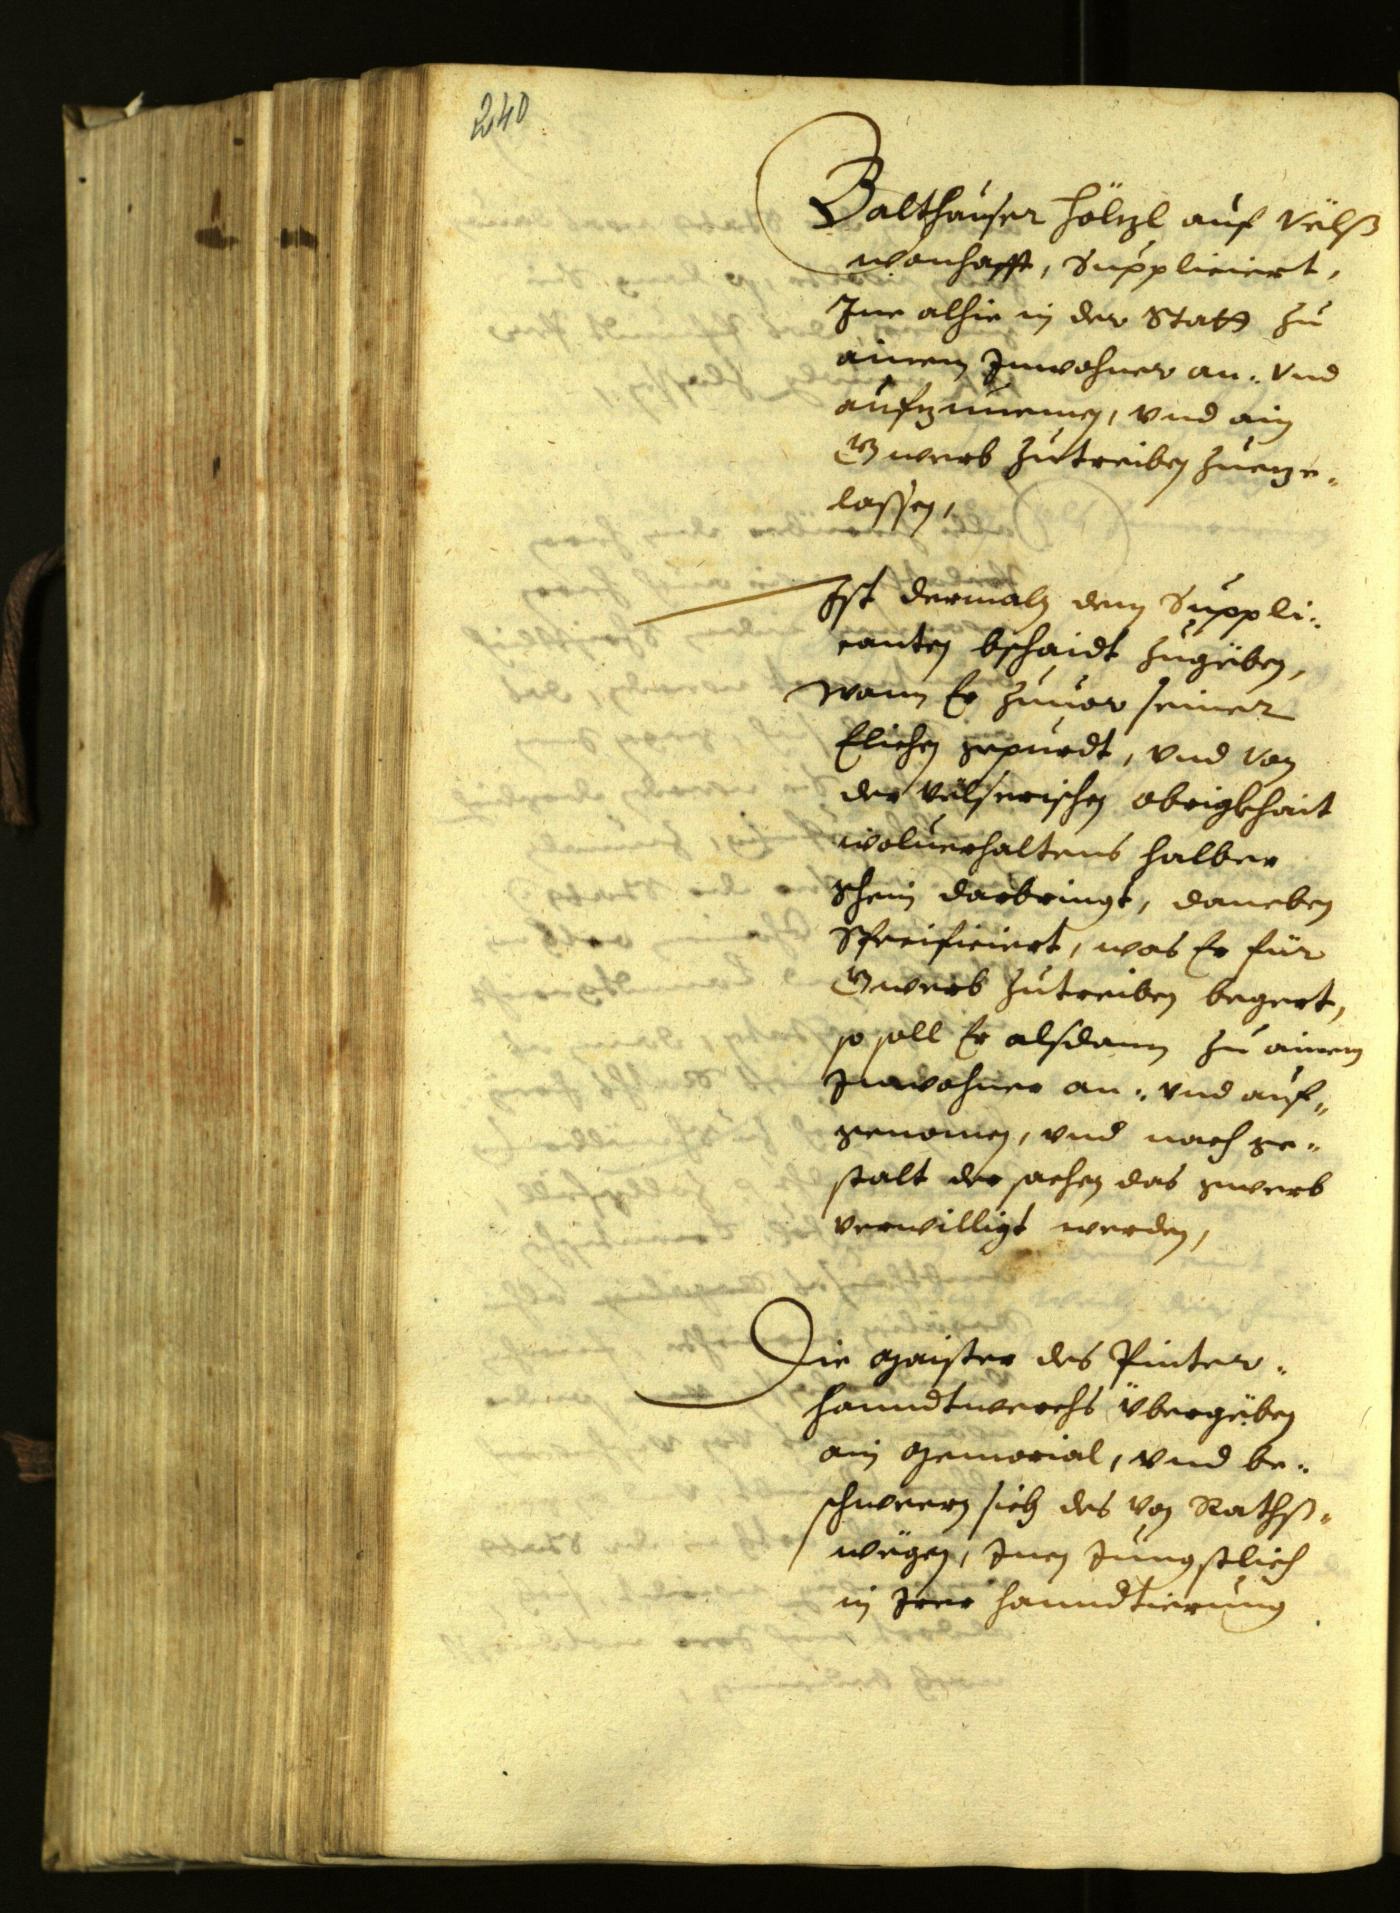 240
Balthauser Hölzl auf Vëlß
wonhafft, Suppliciert,
Ine alhie in der Statt zu
ainem Inwohner an- vnd
aufzunemen, vnd ain
Gwerb zutreiben zuege-
lassen,
Ist dermaln dem Suppli-
canten bschaidt zugëben,
wann Er zuuor seiner
Elichen gepurdt, vnd von
der vëlserischen obrigkhait
woluerhaltens halber
schein darbringt, daneben
Specificiert, was Er für
Gwerb zutreiben begert,
so soll Er alsdann zu ainem
Inwohner an- vnd auf-
genomen, vnd nach ge-
stalt der sachen das gwerb
verwilligt werden,
Die Maister des Pinter-
hanndtwerchs Übergëben
ain Memorial, vnd be-
schweern sich des von Rathß-
wëgen, Inen Jungstlich
in Irer hanndtierung